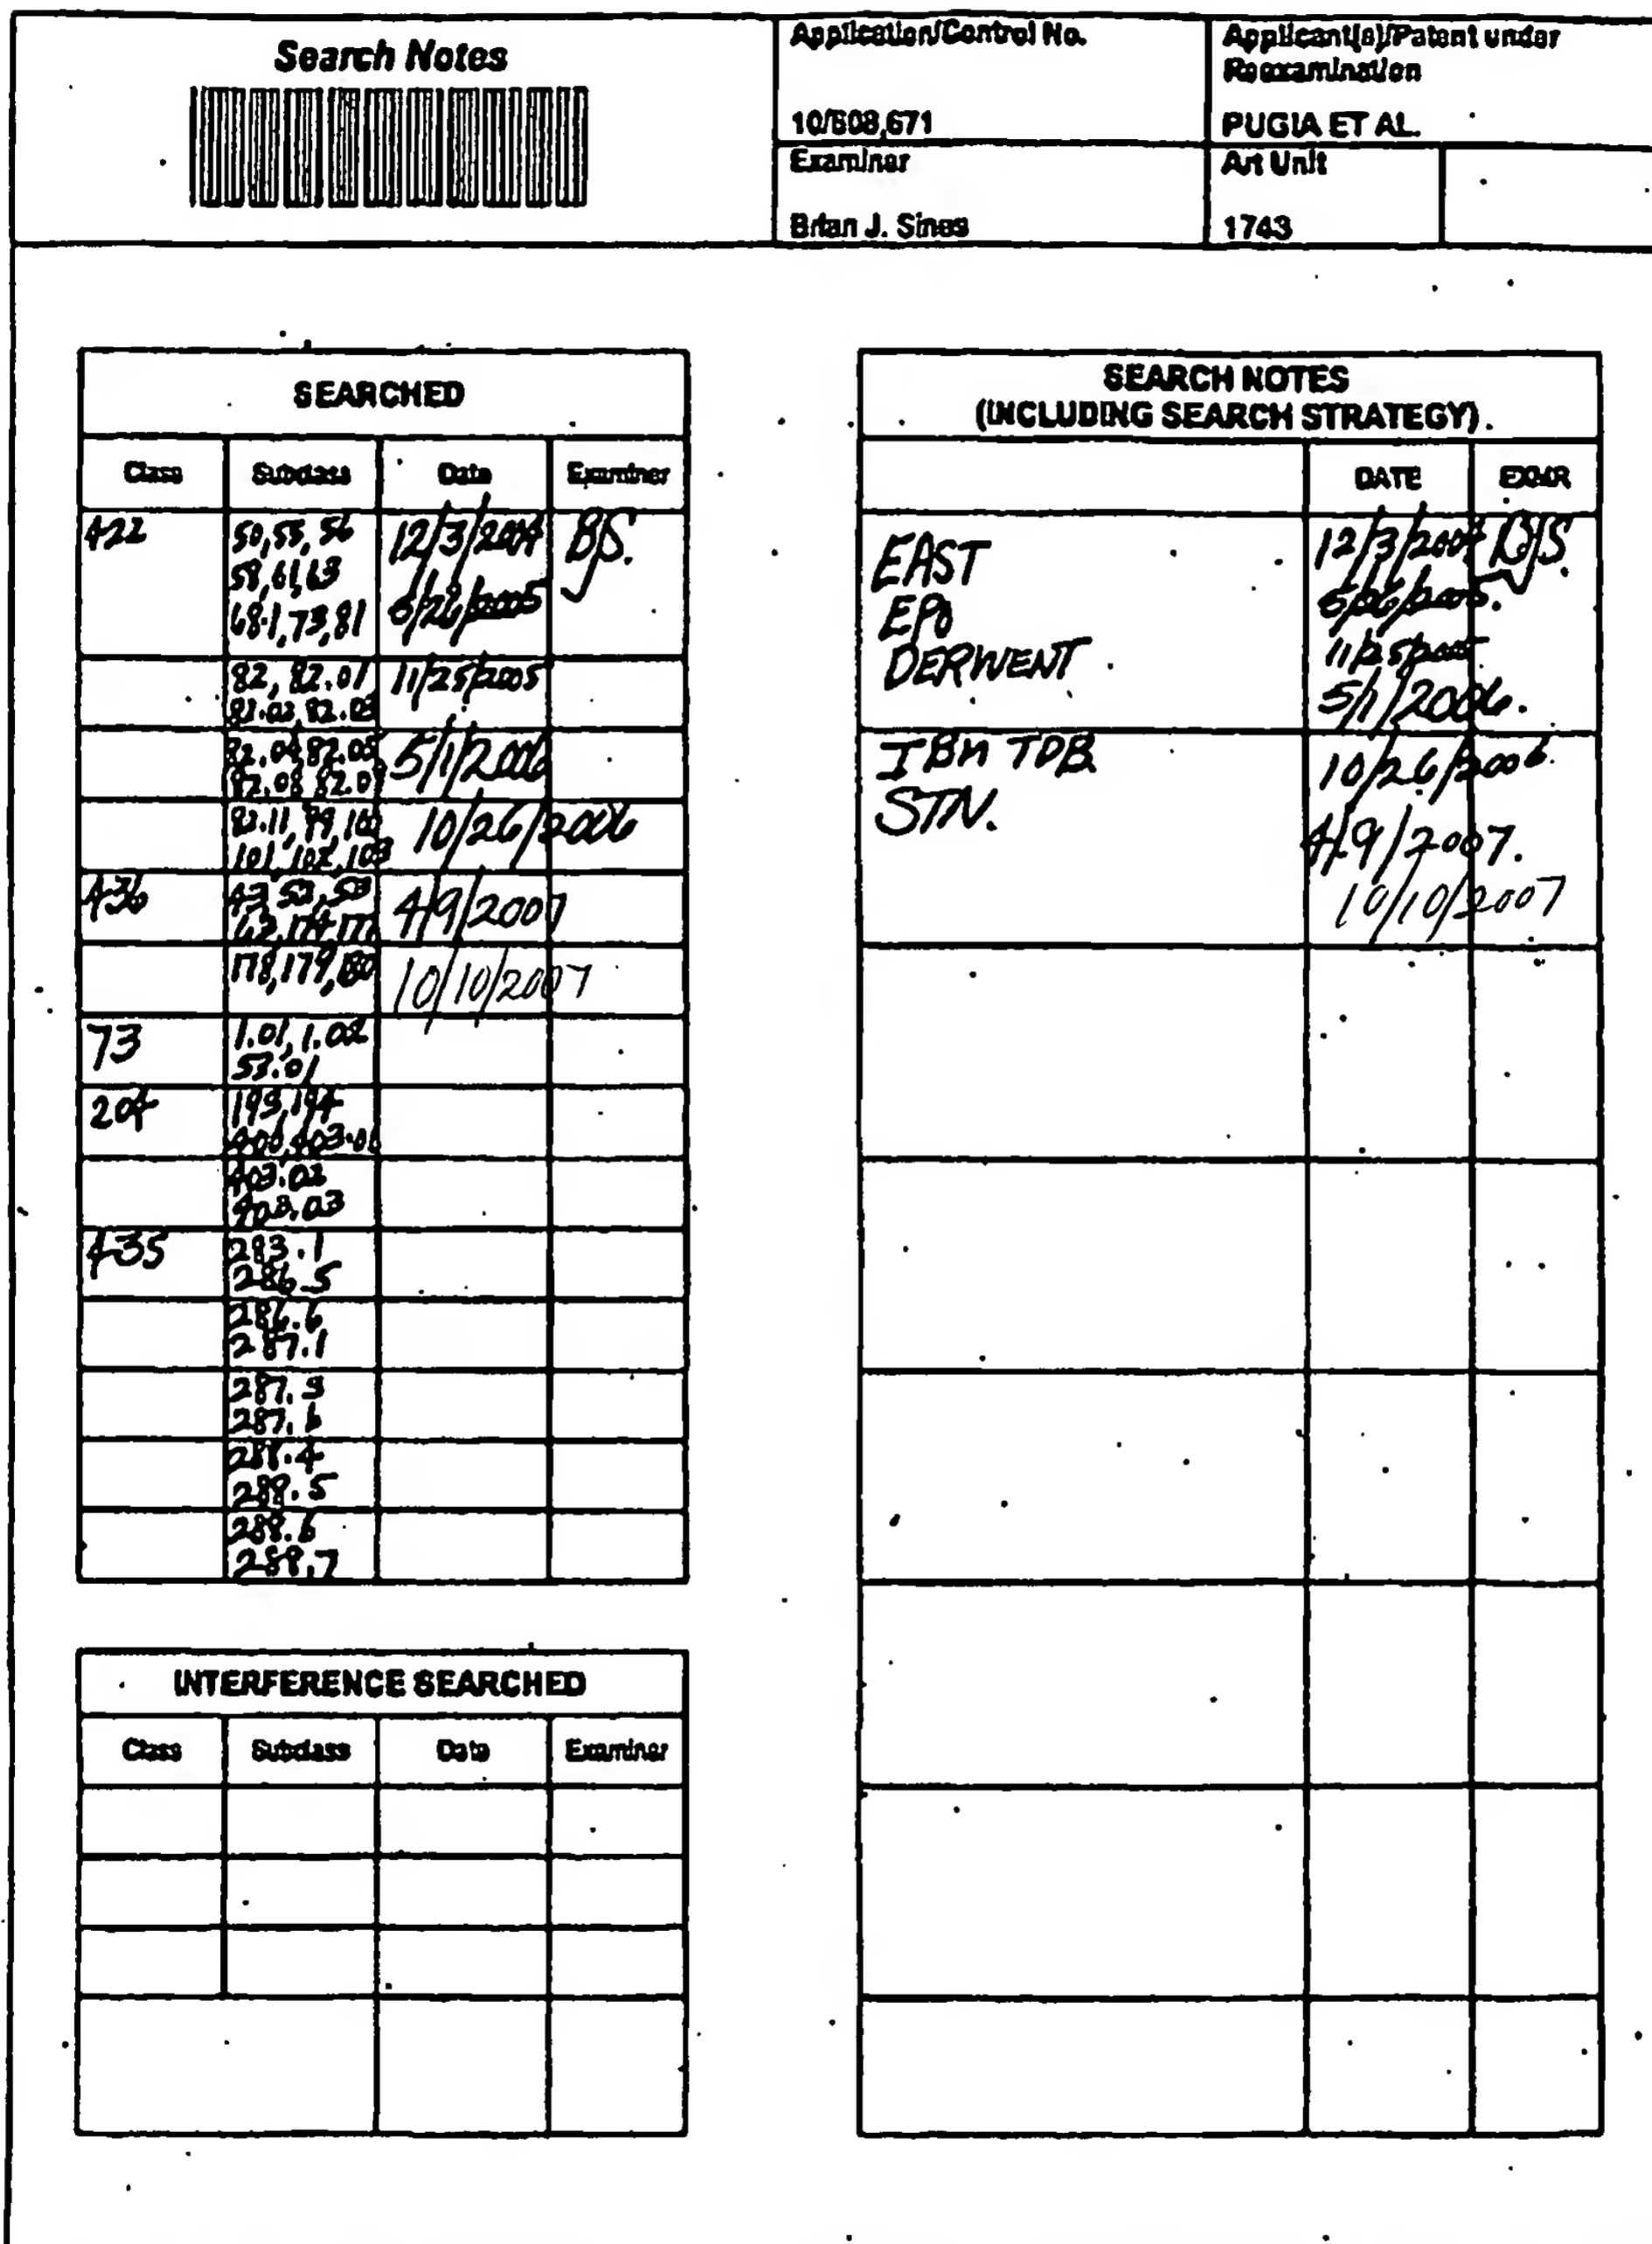 Search Notes
Application/Control No.
10/608,671
Applicant(s)/Patent under
Reexamination
PUGIA ET AL.
Examiner
Brian J. Sines
Art Unit
1743
SEARCHED
Class Subclass Date Examiner
422 50,55,56 12/3/2004 BJS.
58,61,63
68.1,73,81 5/26/2005
82, 82.01 11/25/2005
82.02,82.03
5/1/2006
10/26/2006
101,102,103
436 4/9/2007
178,179,180 10/10/2007
73 1.01,1.02
53.01
204 193,194
400,403.01
403.02
403.03
435 283.1
286.5
286.6
287.1
287.3
287.6
288.4
288.5
288.6
288.7
INTERFERENCE SEARCHED
Class Subclass Date Examiner
SEARCH NOTES
(INCLUDING SEARCH STRATEGY)
DATE EXMR
EAST 12/3/2004 BJS.
EPO 5/26/2005.
DERWENT 11/25/2005
5/1/2006.
IBM TDB 10/26/2006.
STN. 4/9/2007.
10/10/2007